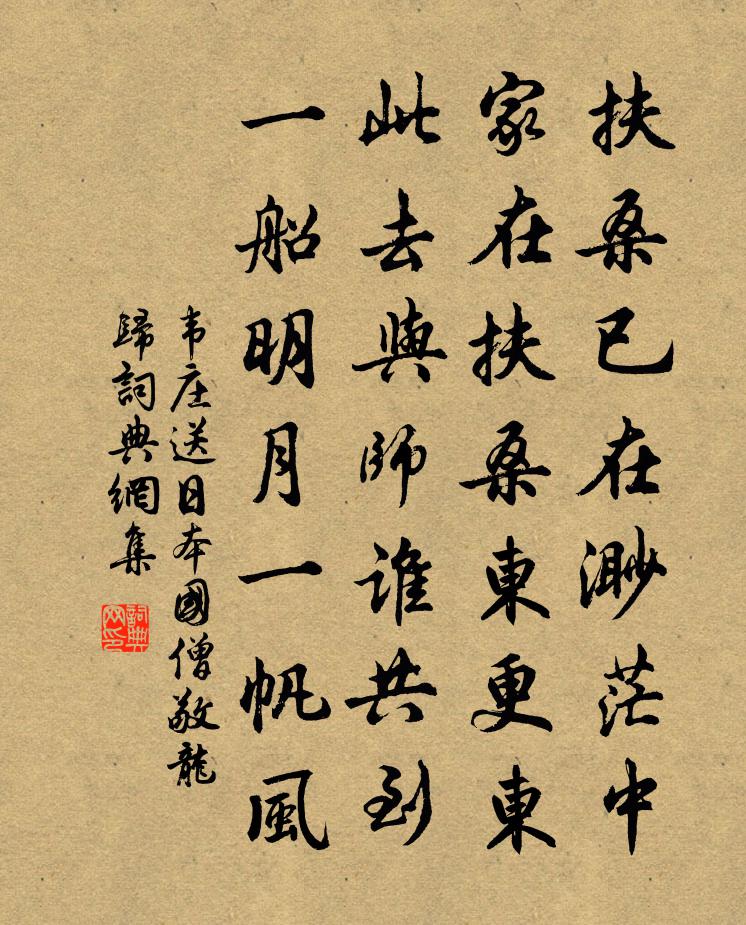 扶桑已在渺茫中
家在扶桑東更東
此去與師誰共到
一船明月一帆風
韦庄送日本國僧敬龍
歸詞典網集
詞典网印